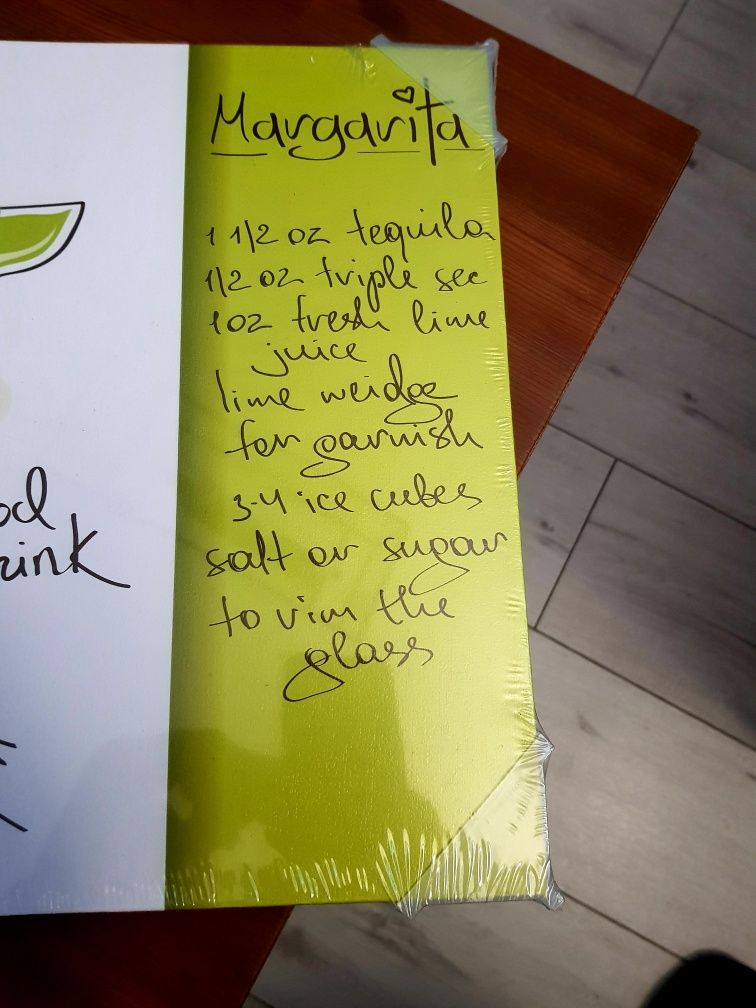 Margarita
1 1/2 oz tequila
1/2 oz triple sec
1 oz fresh lime
juice
lime weidge
for garnish
3-4 ice cubes
salt or sugar
to rim the
glass
od
rink